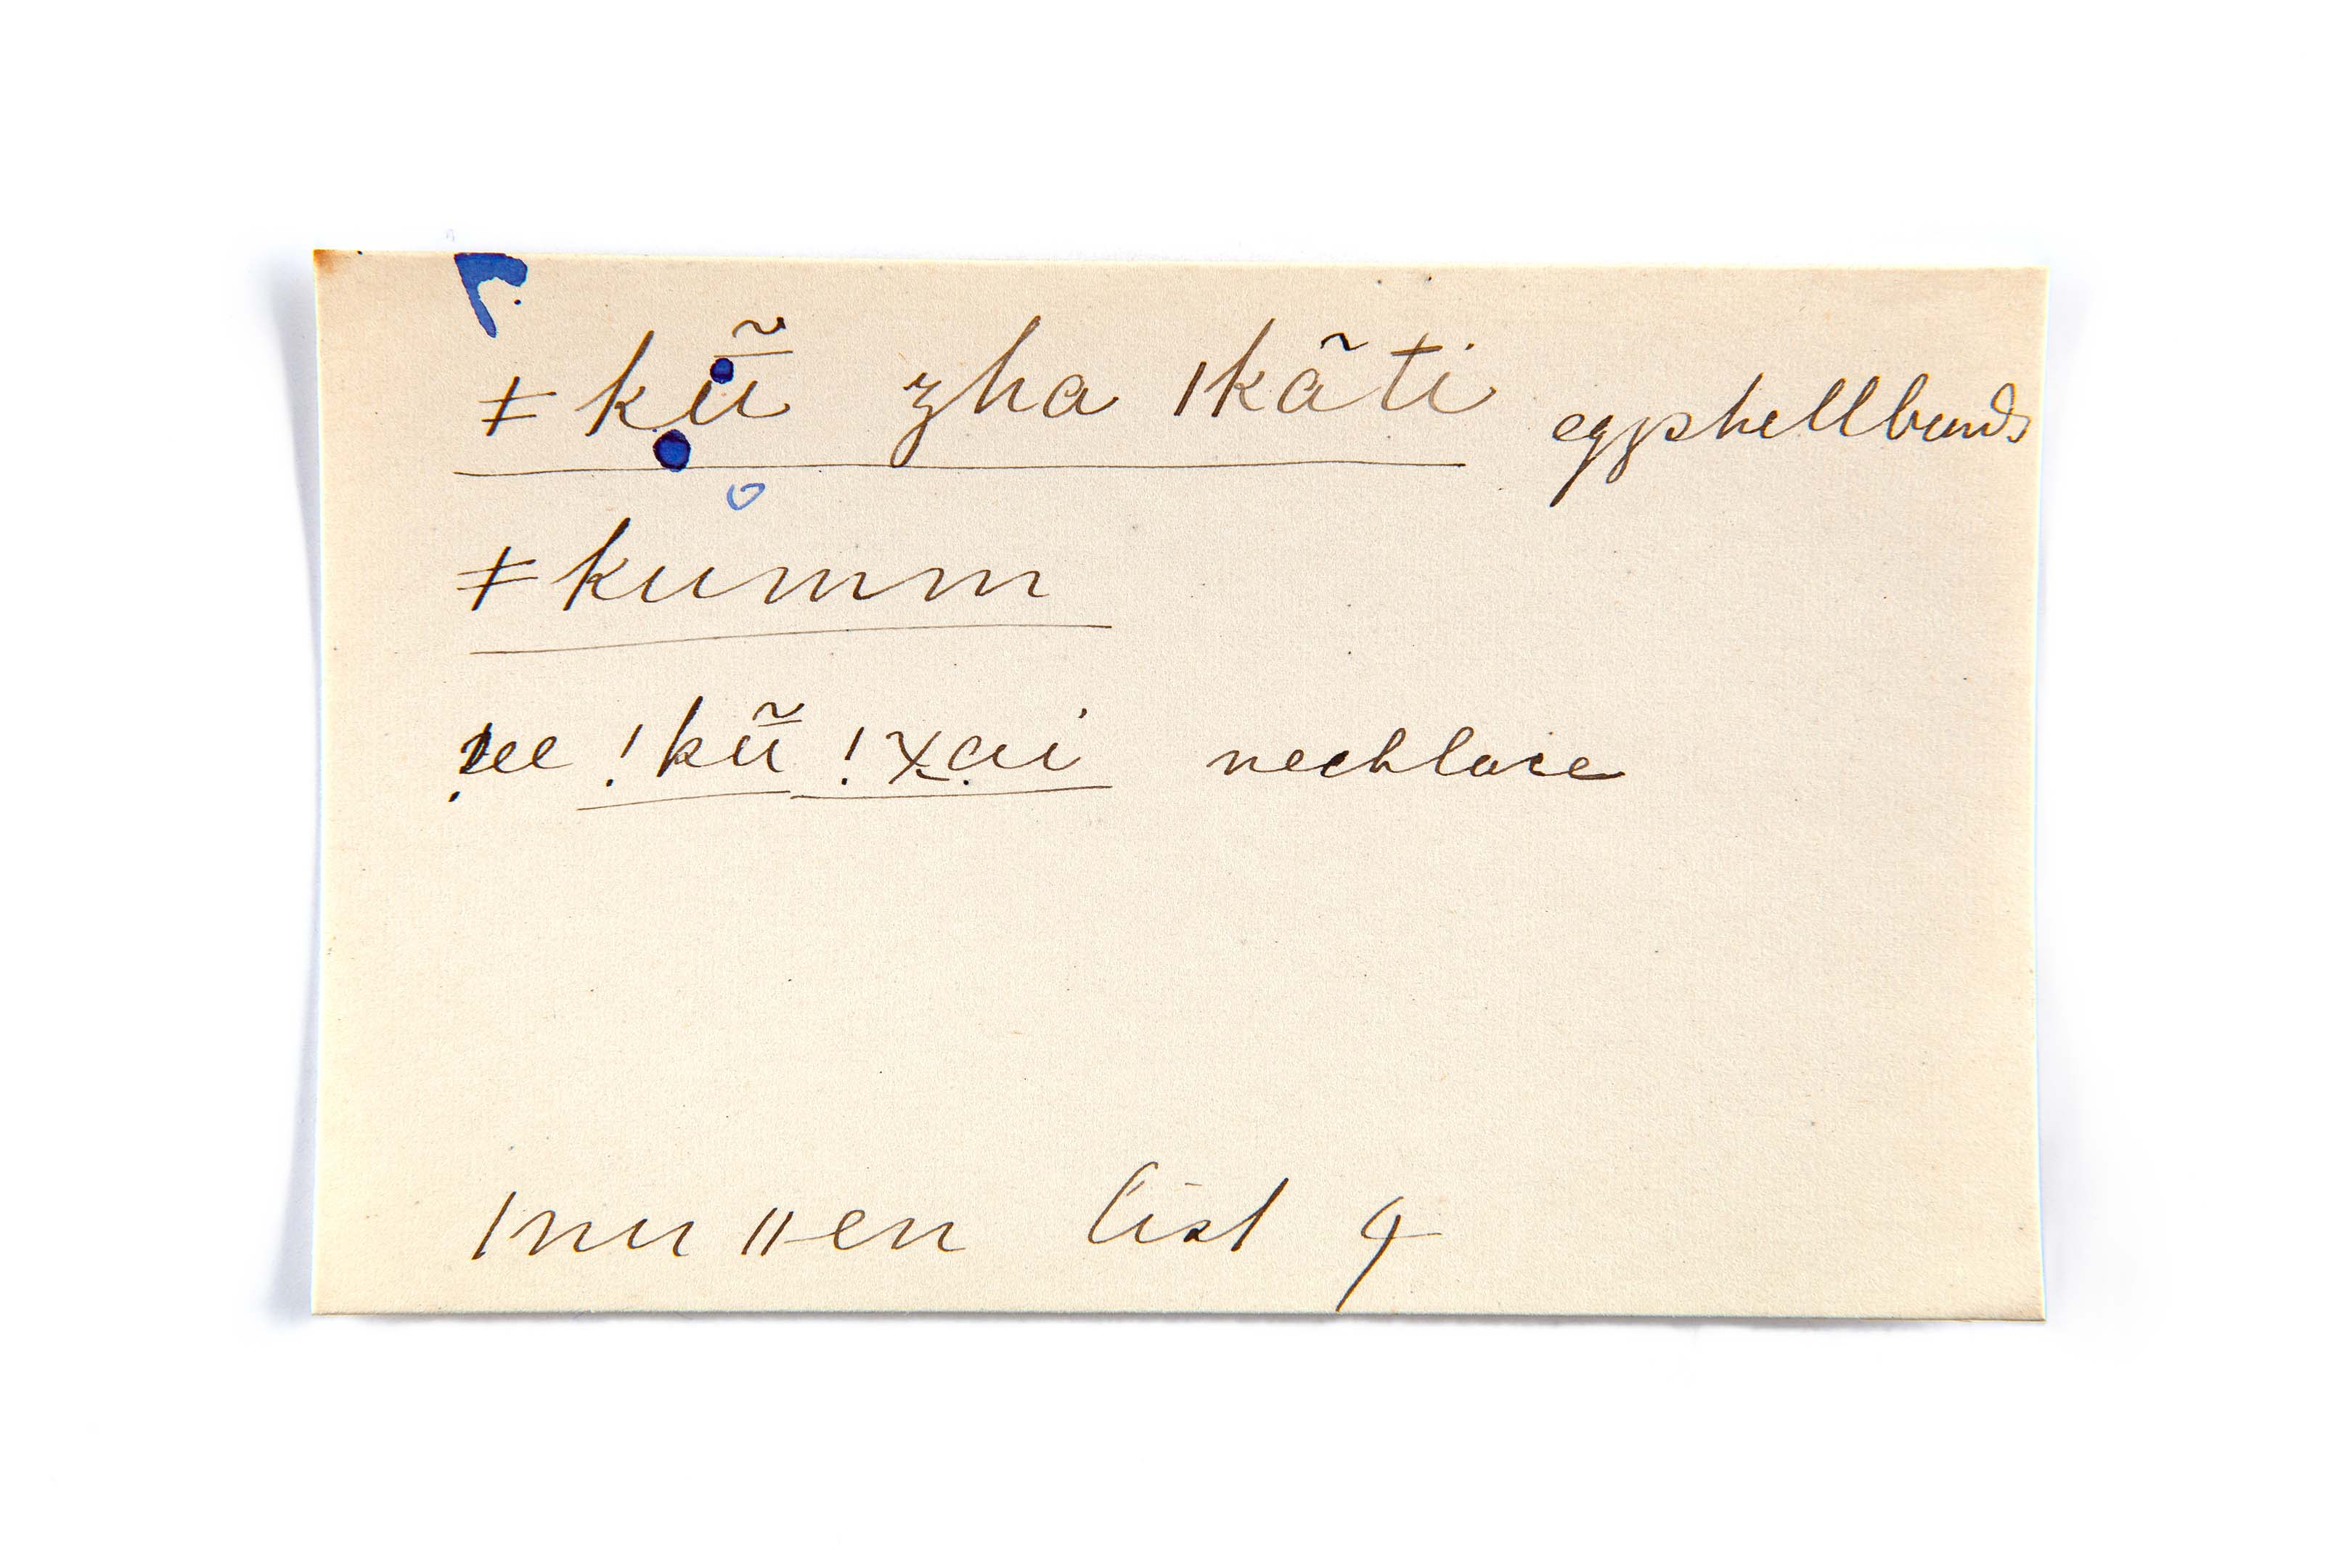 ǂkū̃ zha ǀkãti eggshellbeads
ǂkumm
see !kū̃ !χai necklace
ǀnu ǁen list 4